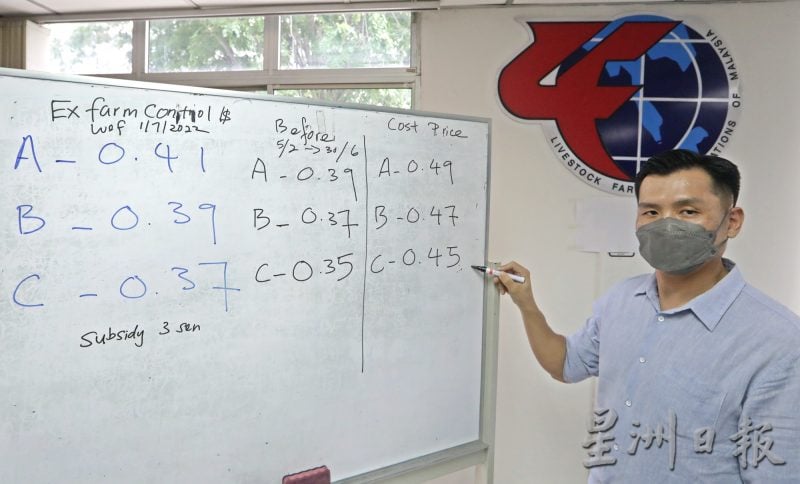 Ex farm Control $
wef 1/7/2022
A - 0.41
B - 0.39
C - 0.37
Subsidy 3 sen
Before
5/2 → 30/6
A - 0.39
B - 0.37
C - 0.35
Cost Price
A - 0.49
B - 0.47
C - 0.45
LIVESTOCK FAR
TIONS OF MALAYSIA
星洲日報